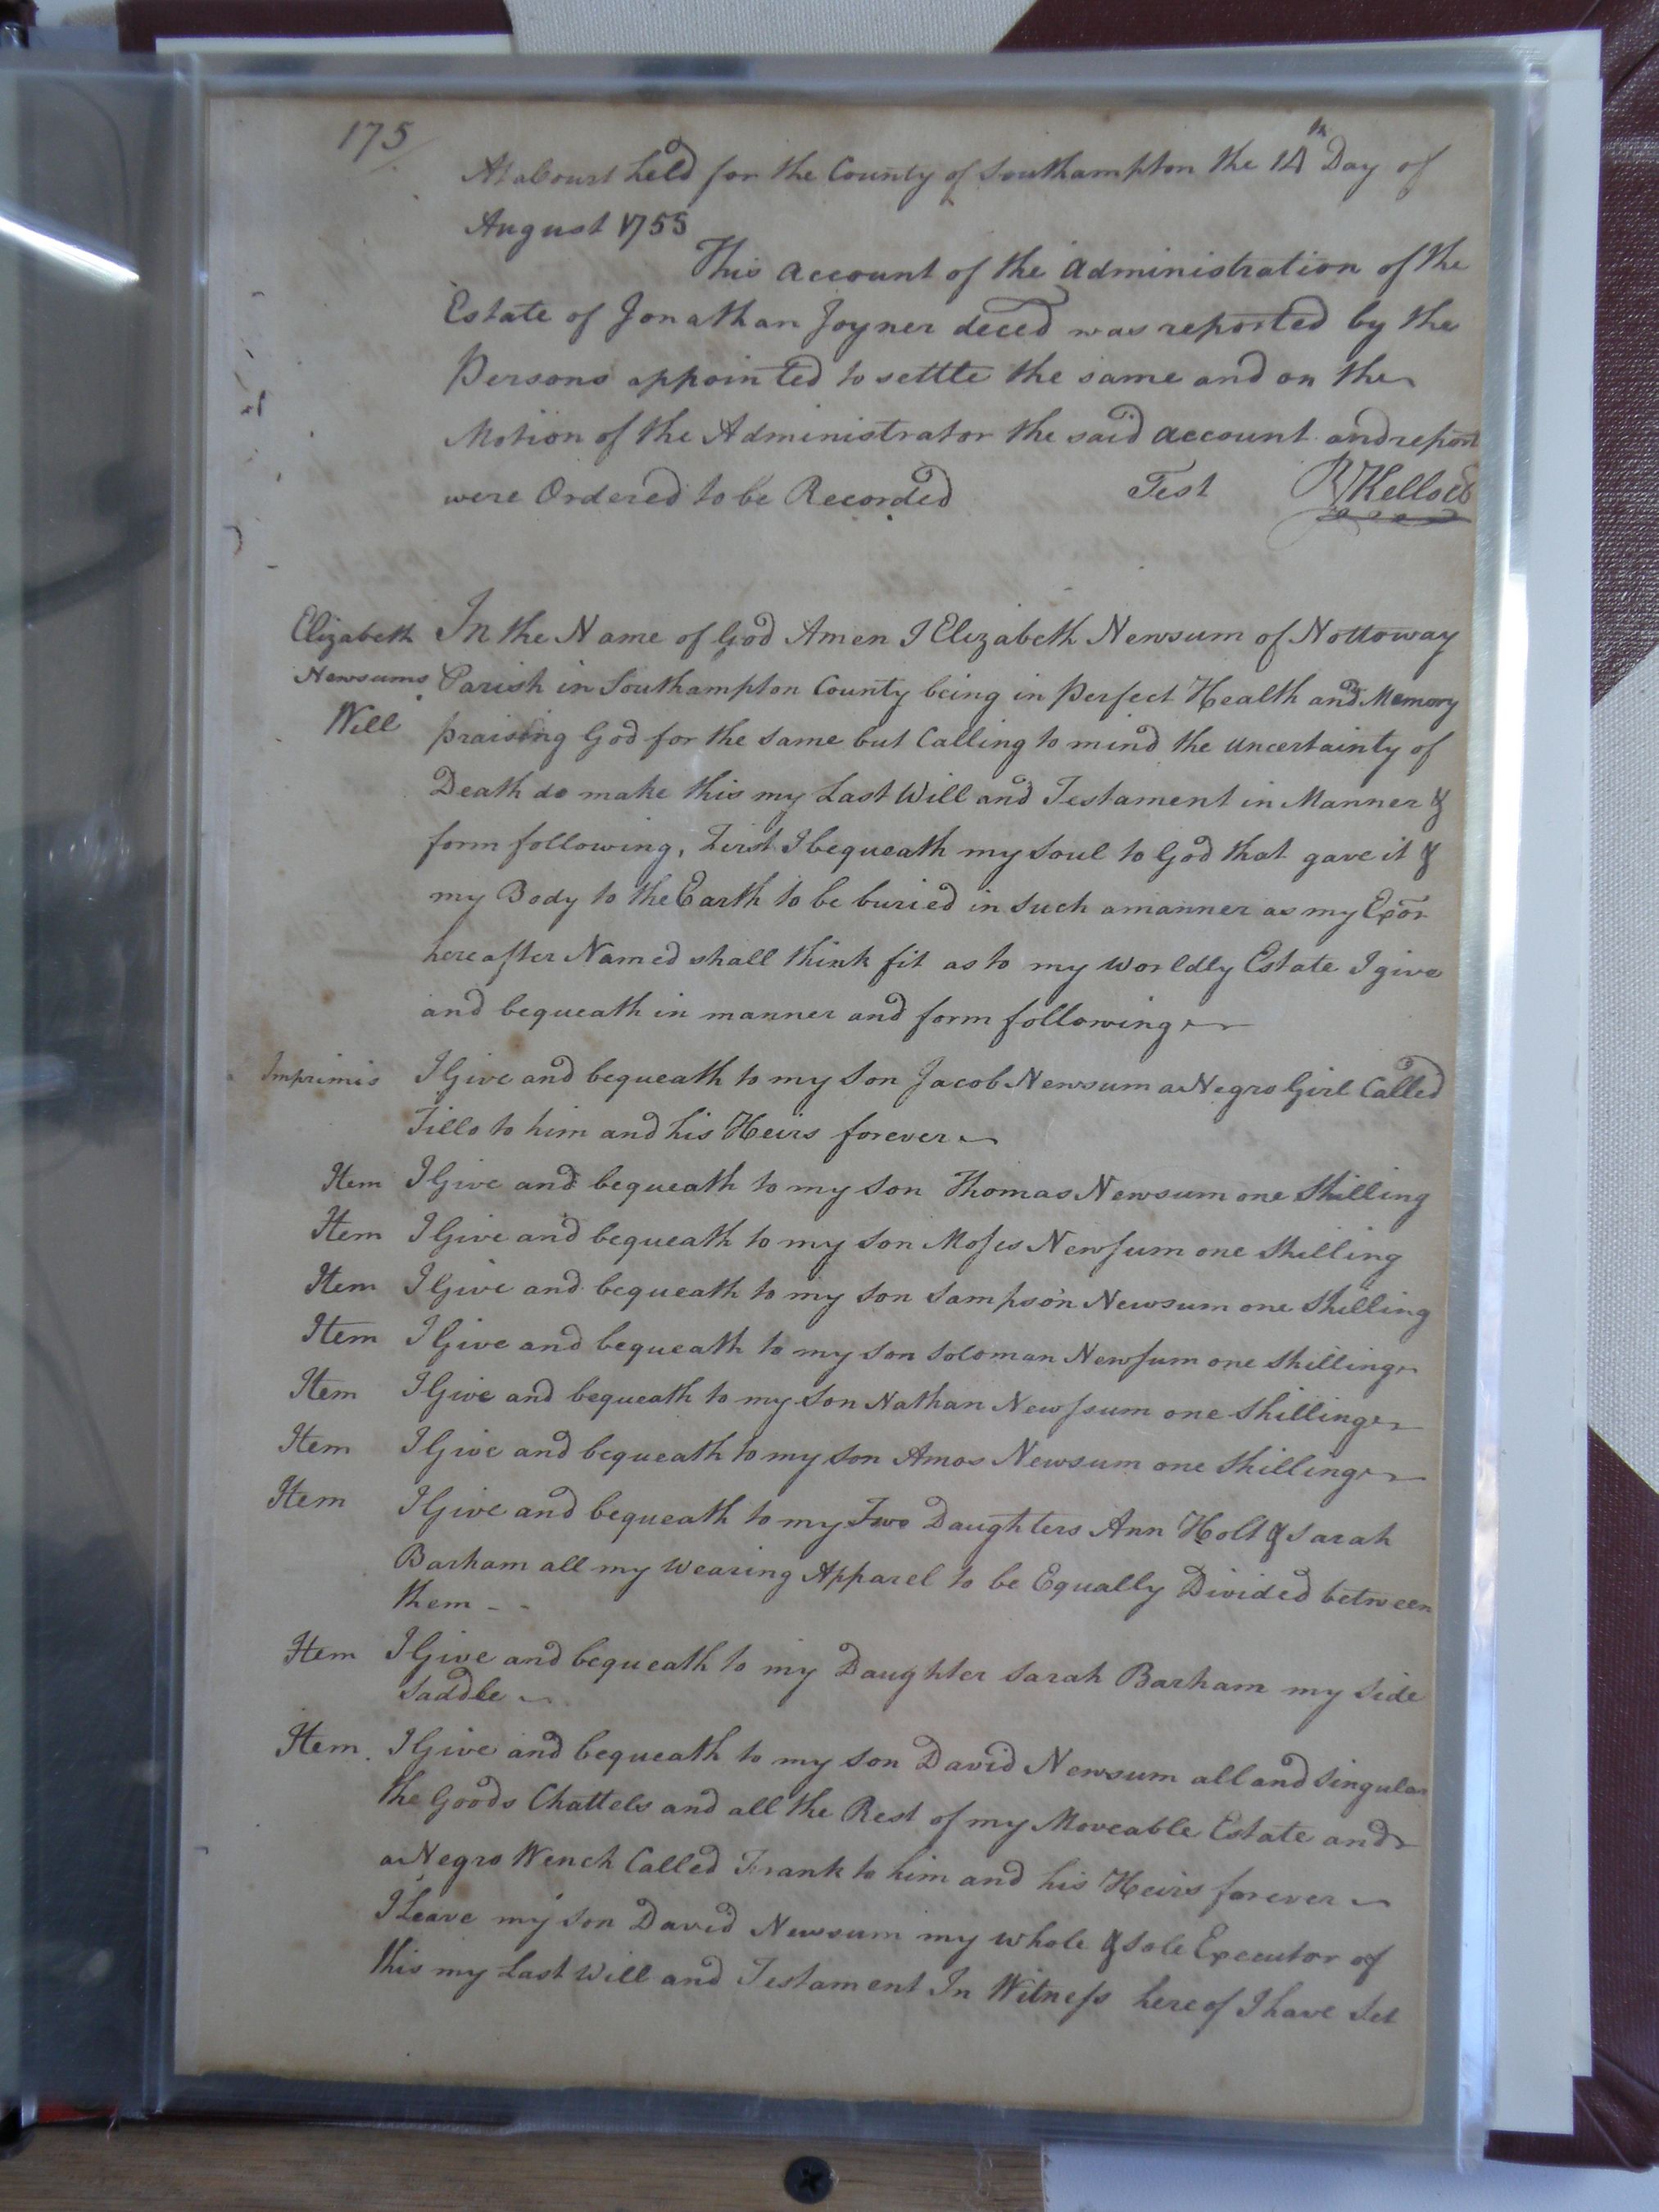 175
At a Court held for the County of Southampton the 14th Day of
August 1755
This account of the administration of the
Estate of Jonathan Joyner deced was reported by the
Persons appointed to settle the same and on the
Motion of the Administrator the said account and report
were Ordered to be Recorded Test R Kello CC
Elizabeth Newsums Will
In the Name of God Amen I Elizabeth Newsum of Nottoway
Parish in Southampton County being in Perfect Health and Memory
praising God for the same but Calling to mind the uncertainty of
Death do make this my Last Will and Testament in Manner &
form following, First I bequeath my Soul to God that gave it &
my Body to the Earth to be buried in such a manner as my Exor
hereafter Named shall think fit as to my Worldly Estate I give
and bequeath in manner and form following
Imprimis I Give and bequeath to my Son Jacob Newsum a Negro Girl Called
Tillo to him and his Heirs forever
Item I Give and bequeath to my Son Thomas Newsum one Shilling
Item I Give and bequeath to my Son Moſes Newſum one Shilling
Item I Give and bequeath to my Son Sampson Newsum one Shilling
Item I Give and bequeath to my Son Soloman Newſum one Shilling
Item I Give and bequeath to my Son Nathan Newſsum one Shilling
Item I Give and bequeath to my Son Amos Newsum one Shilling
Item I Give and bequeath to my Two Daughters Ann Holt & Sarah
Barham all my Wearing Apparel to be Equally Divided between
them - -
Item I Give and bequeath to my Daughter Sarah Barham my Side
Saddle
Item. I Give and bequeath to my Son David Newsum all and Singular
the Goods Chattels and all the Rest of my Moveable Estate and
a Negro Wench Called Frank to him and his Heirs forever
I Leave my Son David Newsum my whole & Sole Executor of
this my Last Will and Testament In Witneſs hereof I have Set